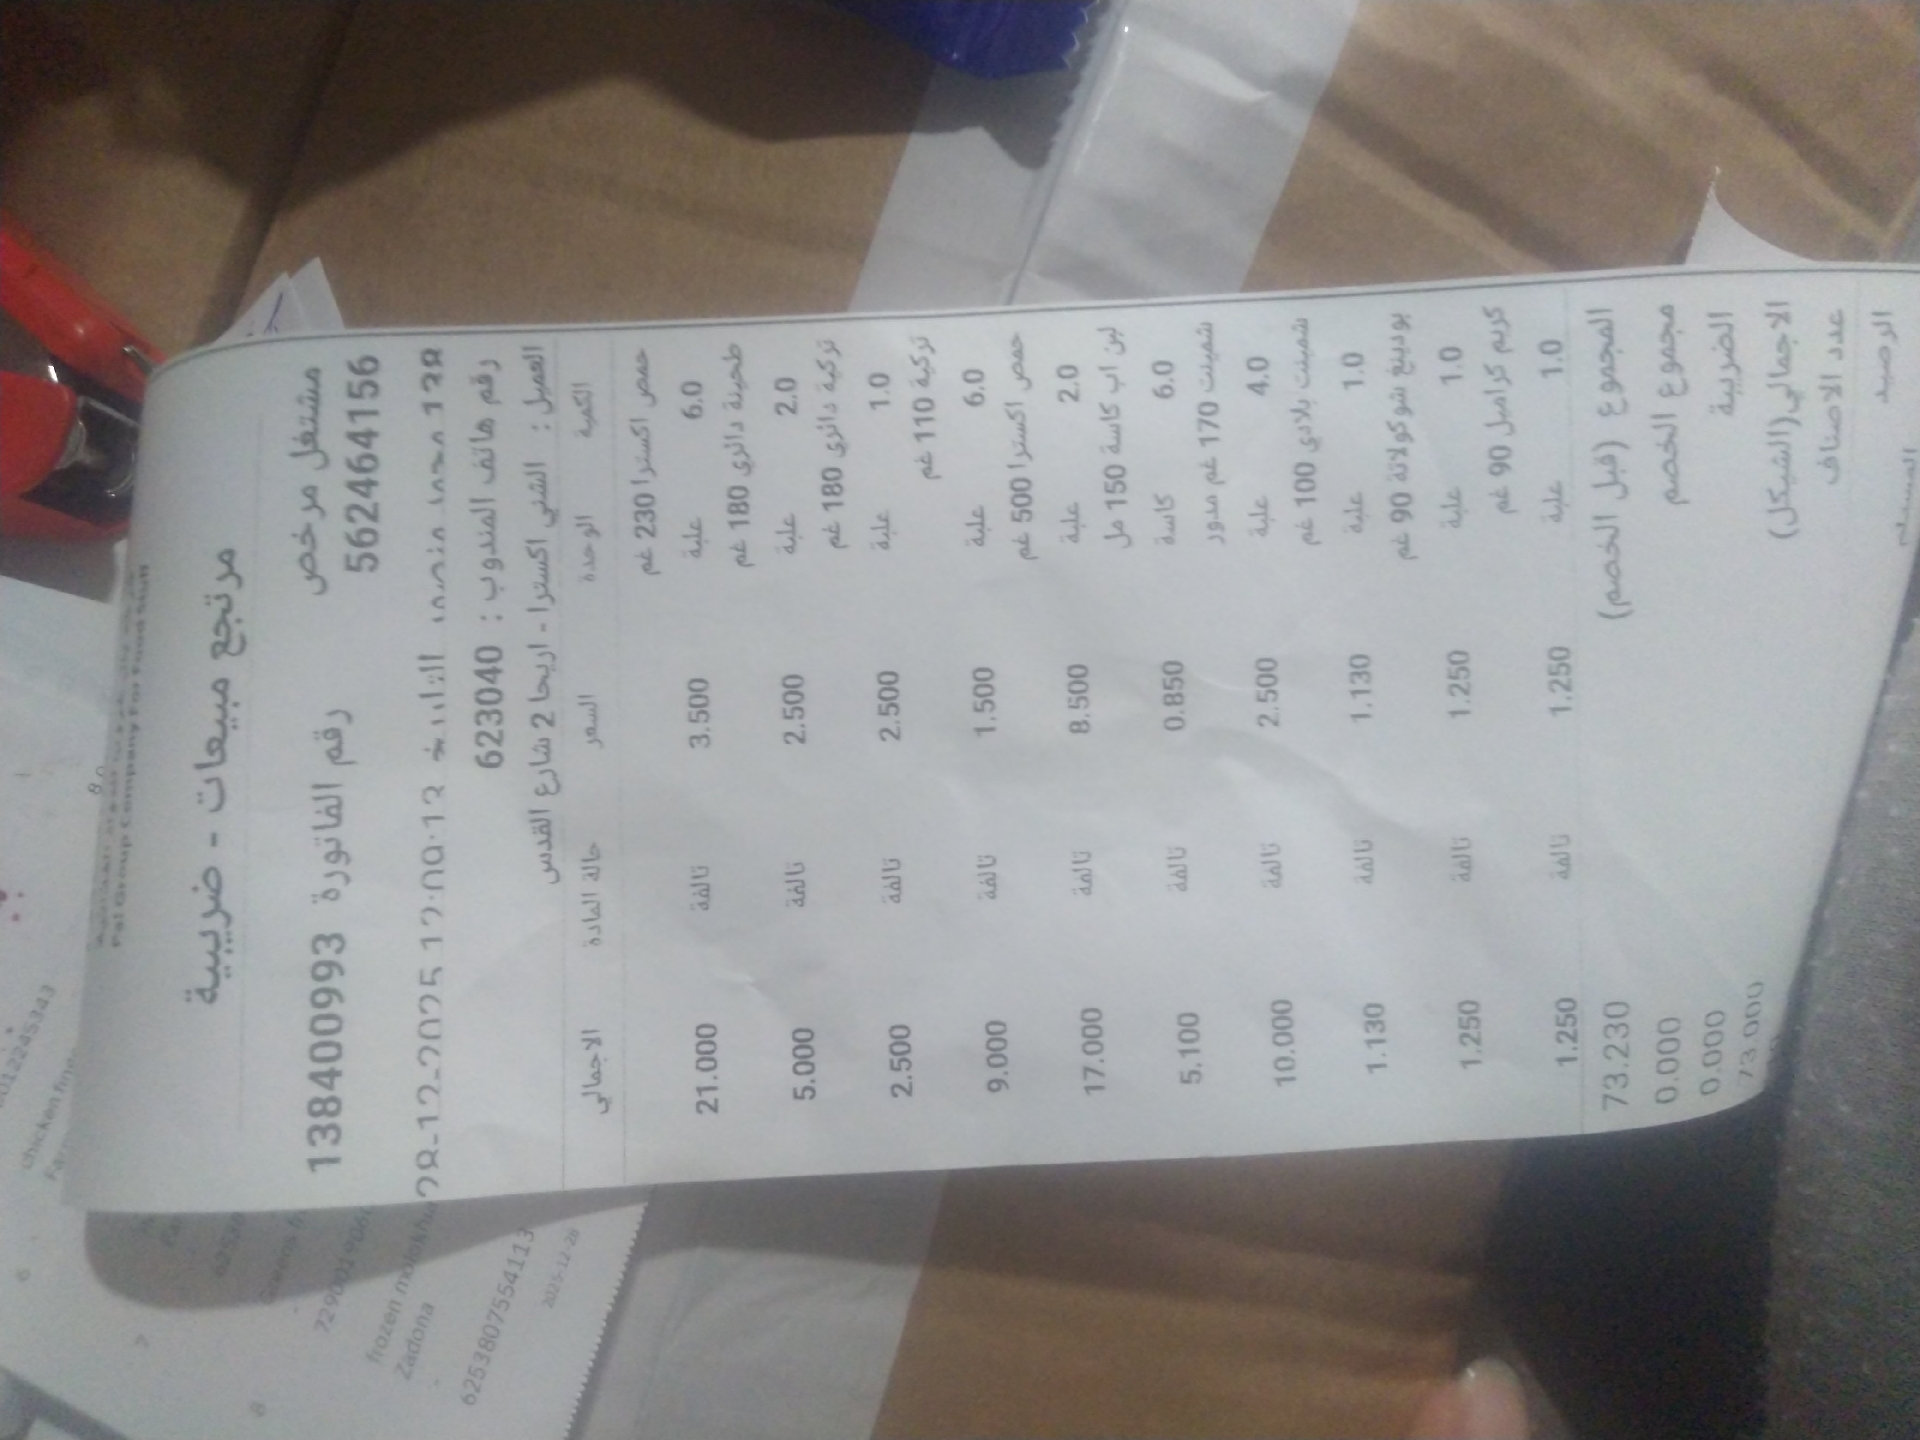 Pal Group Company For Food Stuff
مرتجع مبيعات - ضريبية
مشتغل مرخص
562464156
رقم الفاتورة 138400993
التاريخ 28-12-2025
رقم هاتف المندوب : 623040
العميل : الشني اكسترا - اريحا 2 شارع القدس
الكمية الوحدة السعر حالة المادة الاجمالي
حمص اكسترا 230 غم
6.0 علبة 3.500 تالفة 21.000
طحينة دائري 180 غم
2.0 علبة 2.500 تالفة 5.000
تركية دائري 180 غم
1.0 علبة 2.500 تالفة 2.500
تركية 110 غم
6.0 علبة 1.500 تالفة 9.000
حمص اكسترا 500 غم
2.0 علبة 8.500 تالفة 17.000
لبن اب كاسة 150 مل
6.0 كاسة 0.850 تالفة 5.100
شمينت 170 غم مدور
4.0 علبة 2.500 تالفة 10.000
شمينت بلادي 100 غم
1.0 علبة 1.130 تالفة 1.130
بودينغ شوكولاتة 90 غم
1.0 علبة 1.250 تالفة 1.250
كريم كراميل 90 غم
1.0 علبة 1.250 تالفة 1.250
المجموع (قبل الخصم) 73.230
مجموع الخصم 0.000
الضريبة 0.000
الاجمالي(الشيكل) 73.000
عدد الاصناف
الرصيد
chicken
frozen molokhia
Zadona
6253807554113
2025-12-28